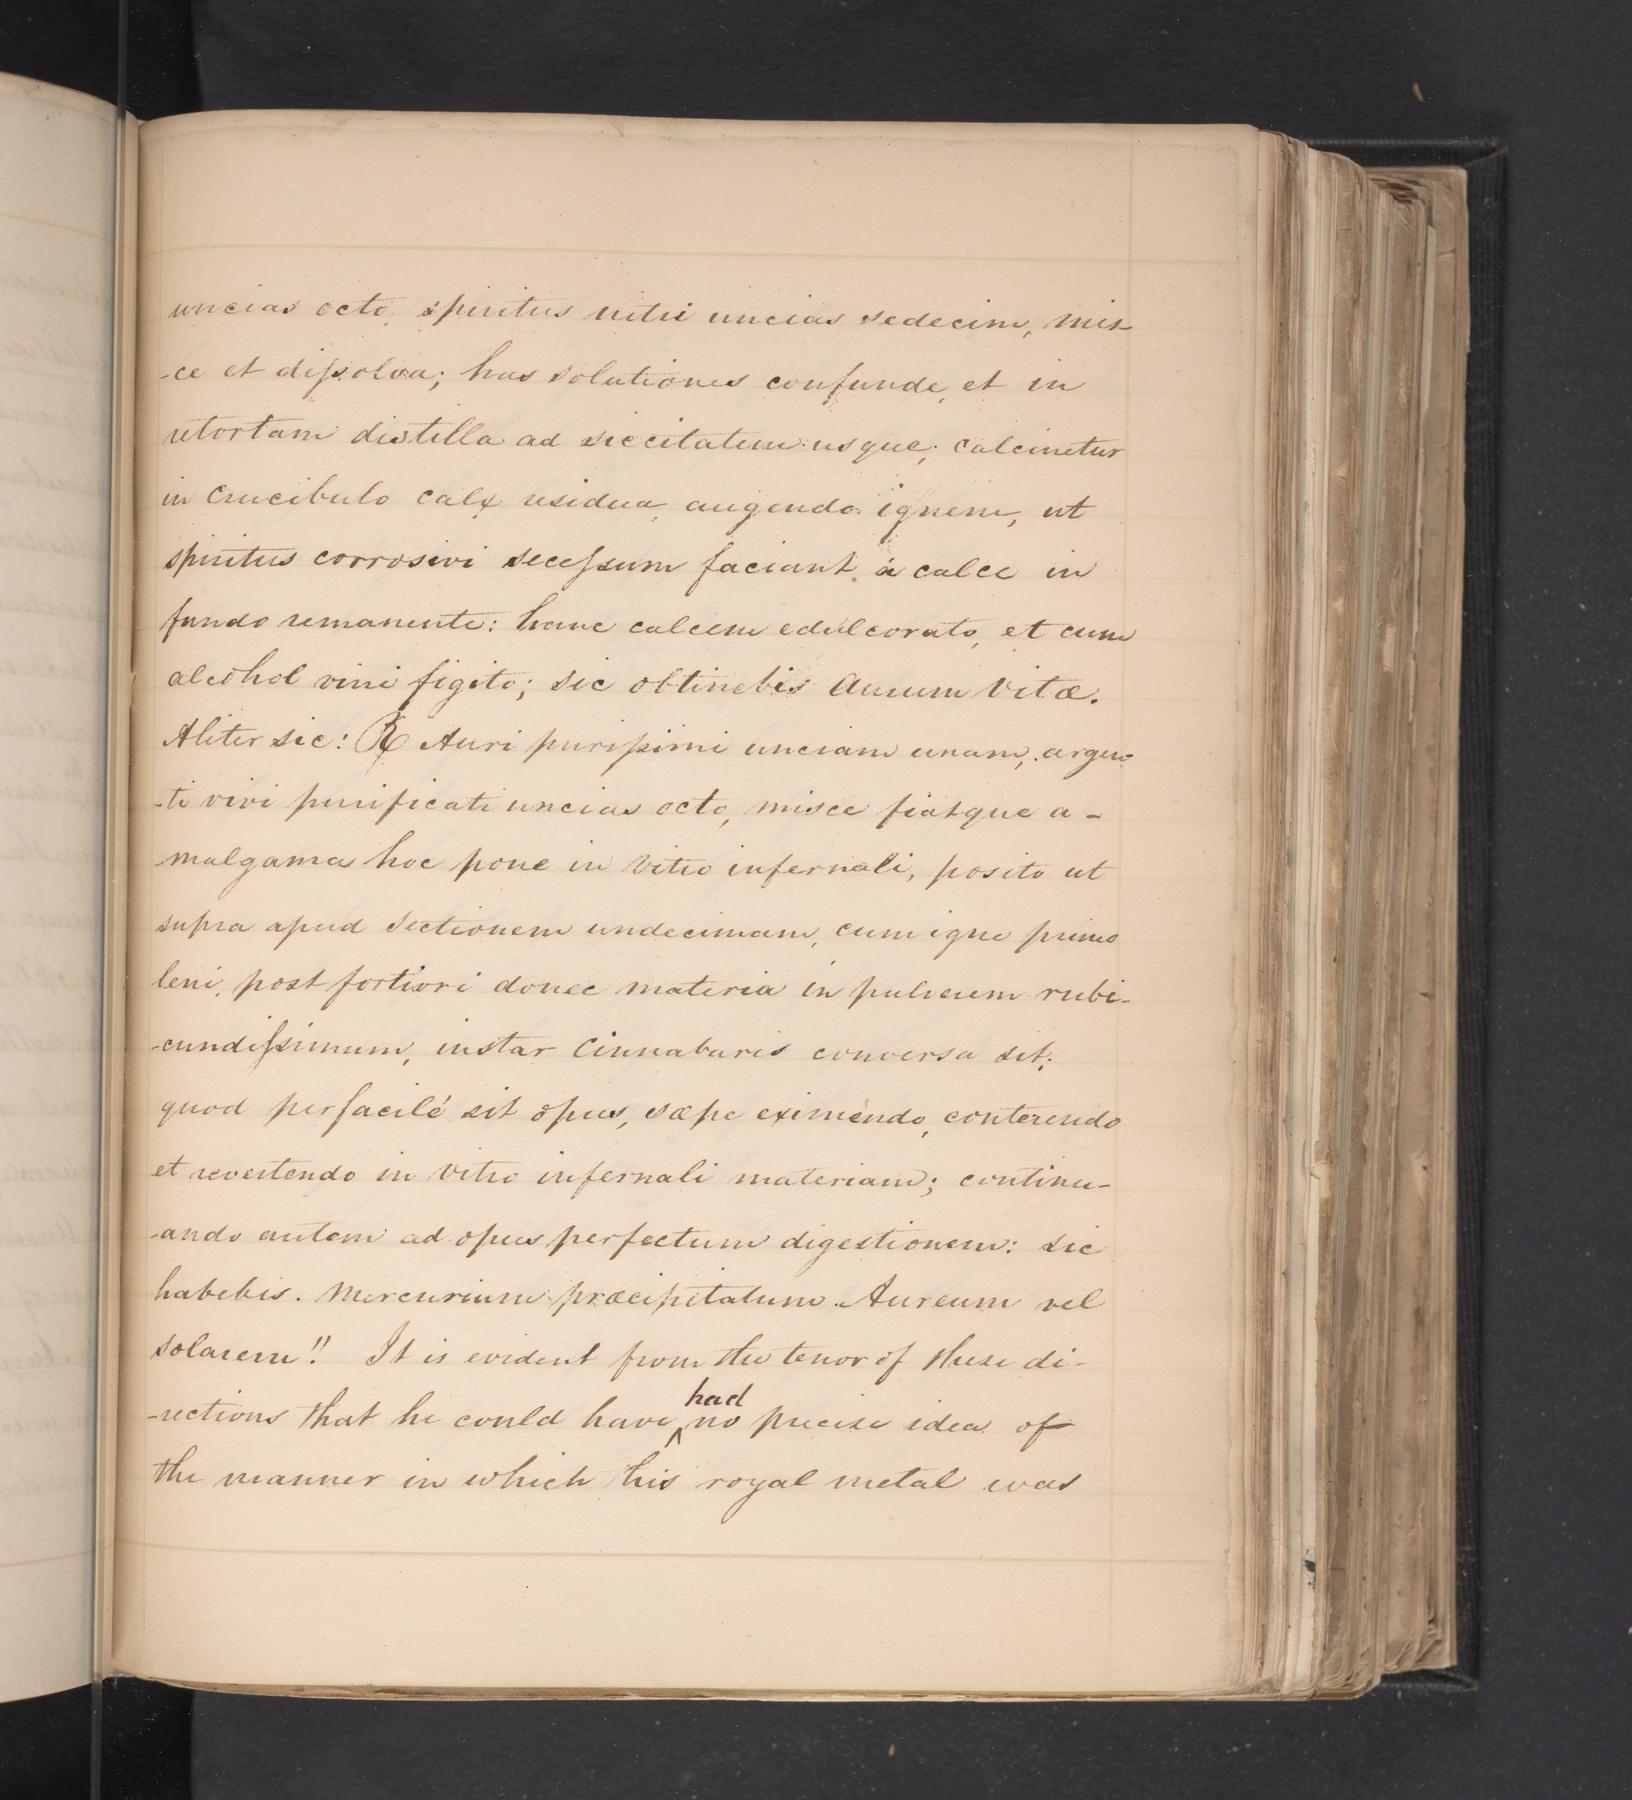 uncias octo, spiritus nitri uncias sedecim, mis-
-ce et dissolva; has solutiones confunde, et in
retortam distilla ad siccitatem usque; calcinetur
in Crucibulo calx residua augendo ignem, ut
spiritus corrosivi secessum faciant à calce in
fundo remanente: hanc calcem edulcorato, et cum
alcohol vini figito; sic obtinebis Aurum Vitæ.
Aliter sic: ℞ Auri purissimi unciam unam, argen-
-ti vivi purificati uncias octo, misce fiatque a-
-malgama hoc pone in Vitro infernali, posito ut
supra apud Sectionem undecimam, cum igne primo
leni, post fortiori donec materia in pulverem rubi-
-cundissimum, instar Cinnabaris conversa sit;
quod perfacilé sit opus, sæpe eximendo, conterendo
et revertendo in Vitro infernali materiam; continu-
-ando autem ad opus perfectum digestionem: sic
habebis. Mercurium præcipitatum Aureum vel
solarem!! It is evident from the tenor of these di-
-rections that he could have had no precise idea of
the manner in which this royal metal was